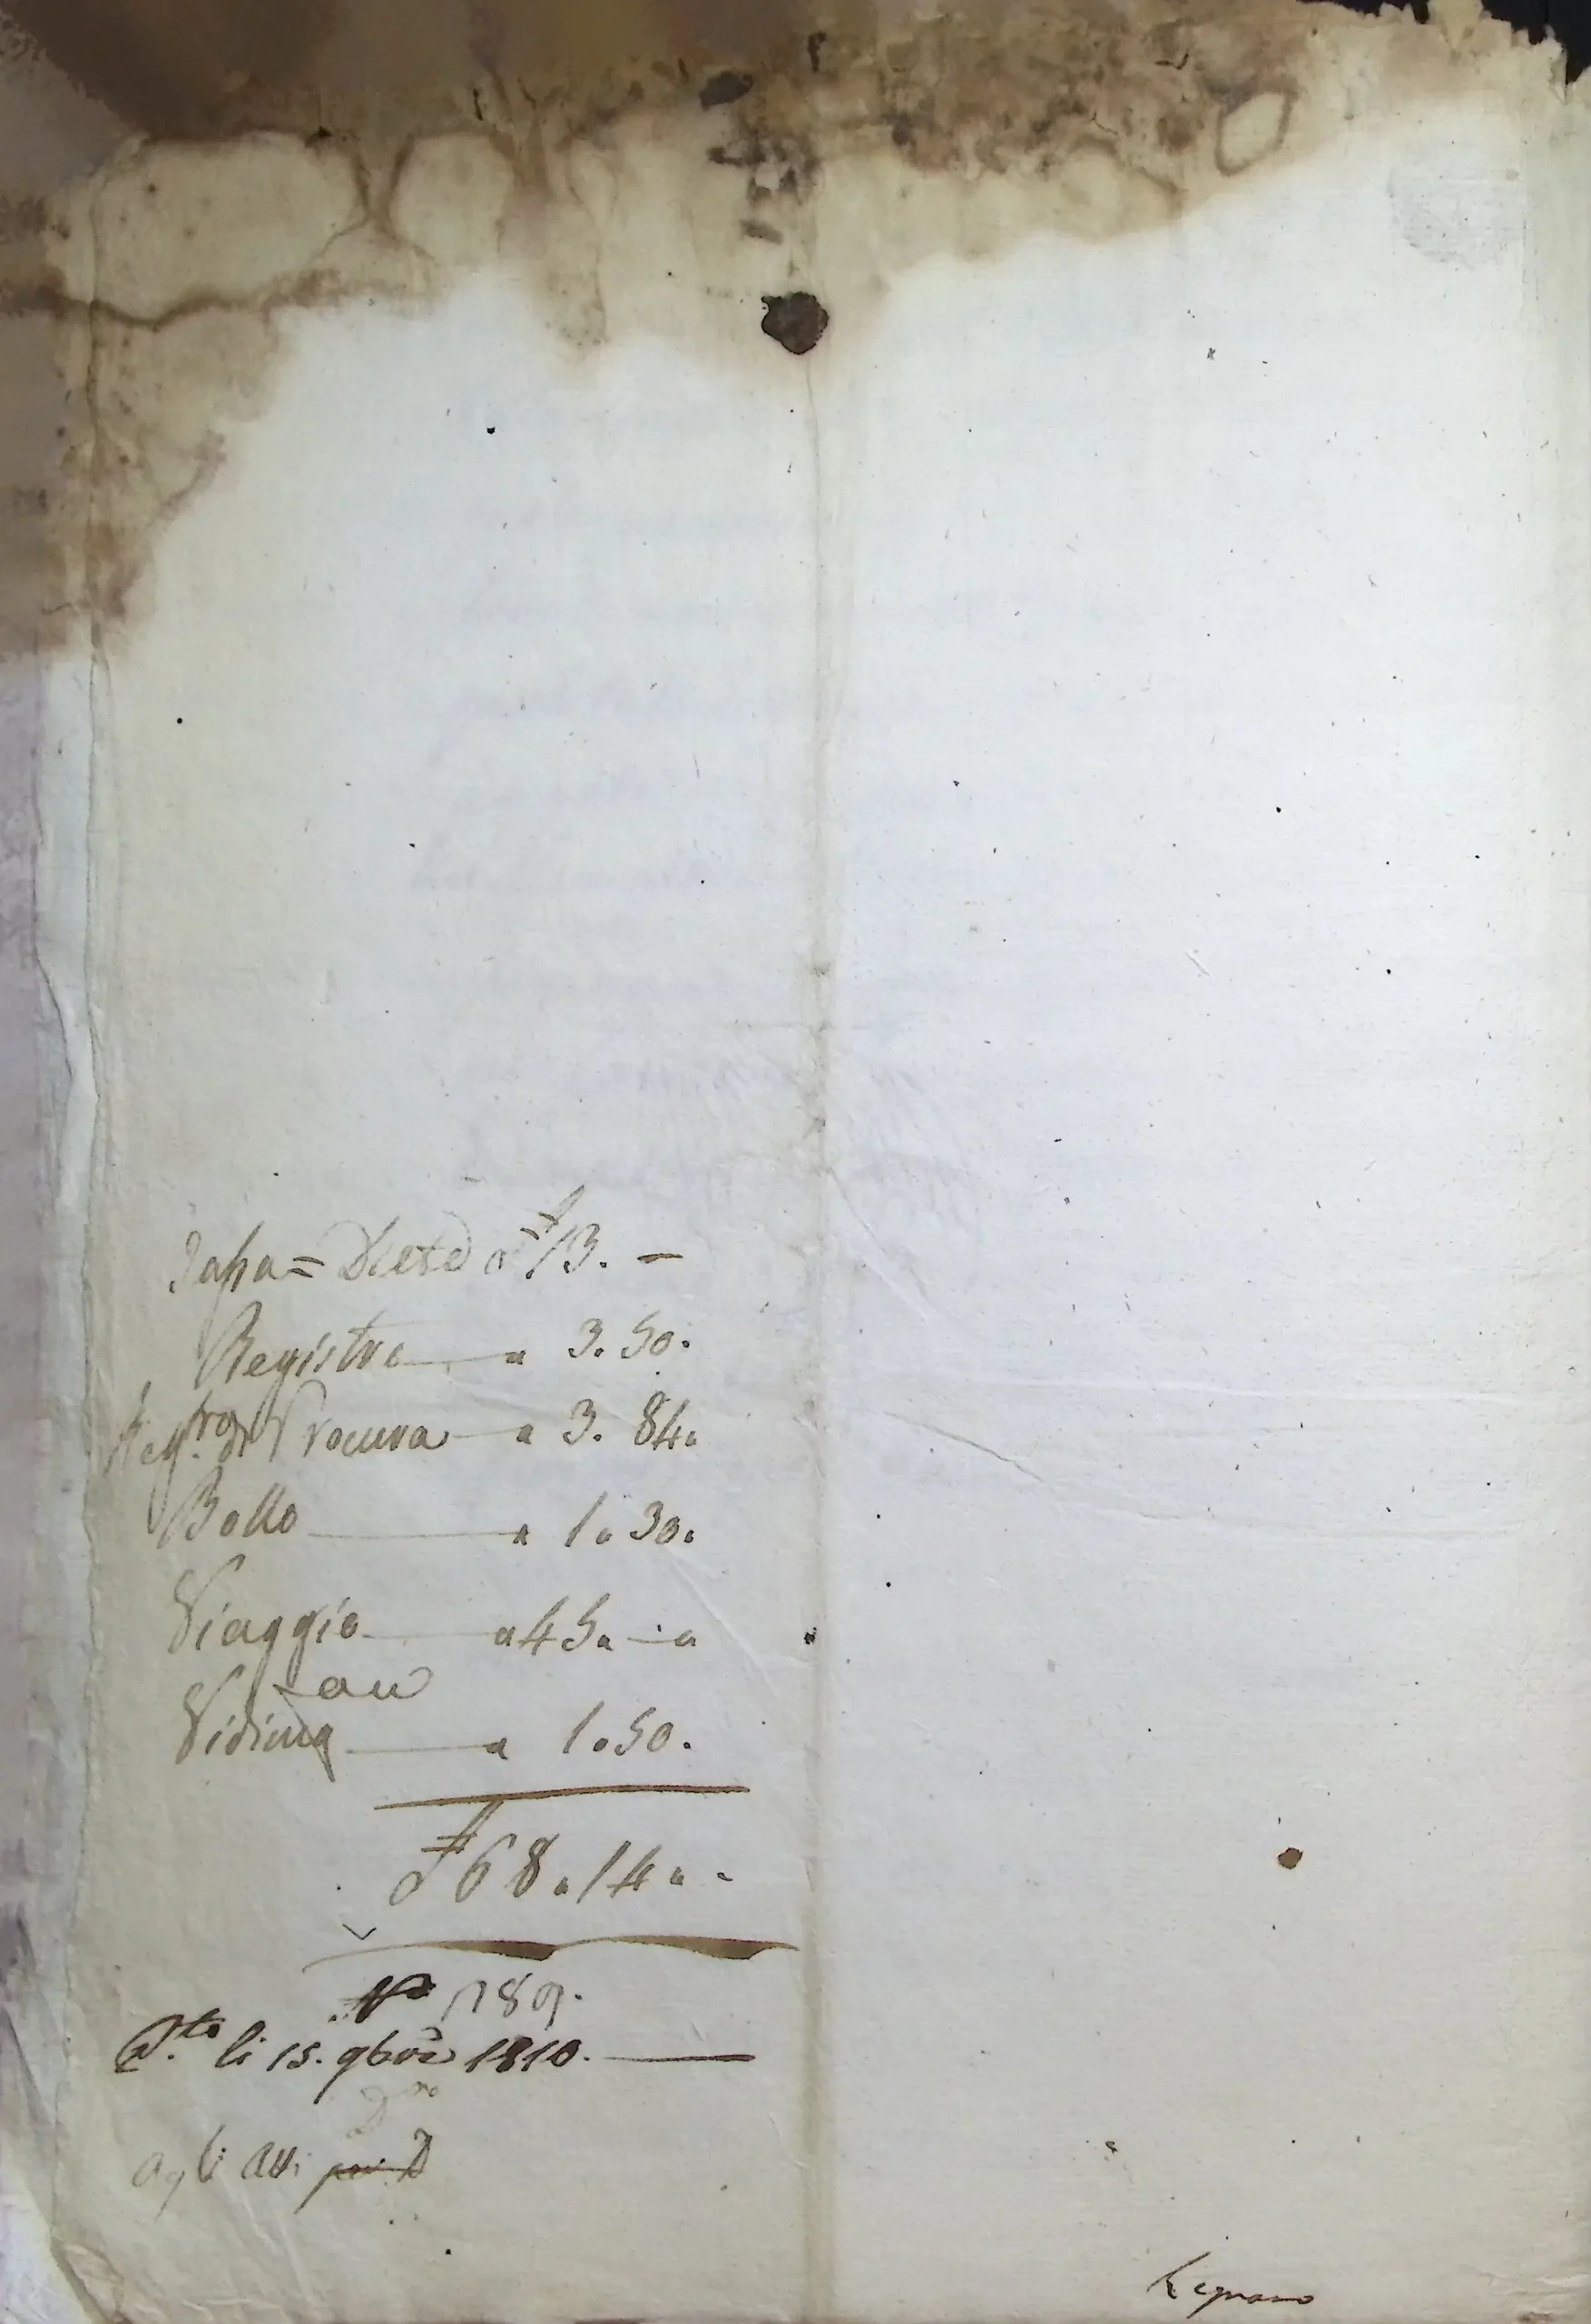 Tassa = Diete a £ 13. -
Registro — " 3. 50.
Reg.tro di Procura — " 3. 84.
Bollo — " 1. 30.
Viaggio — " 45. — "
Vidima — " 1. 50.
£ 68. 14. -
N° 1789.
P.to li 15. 9bre 1810. —
Agli atti
Legnano